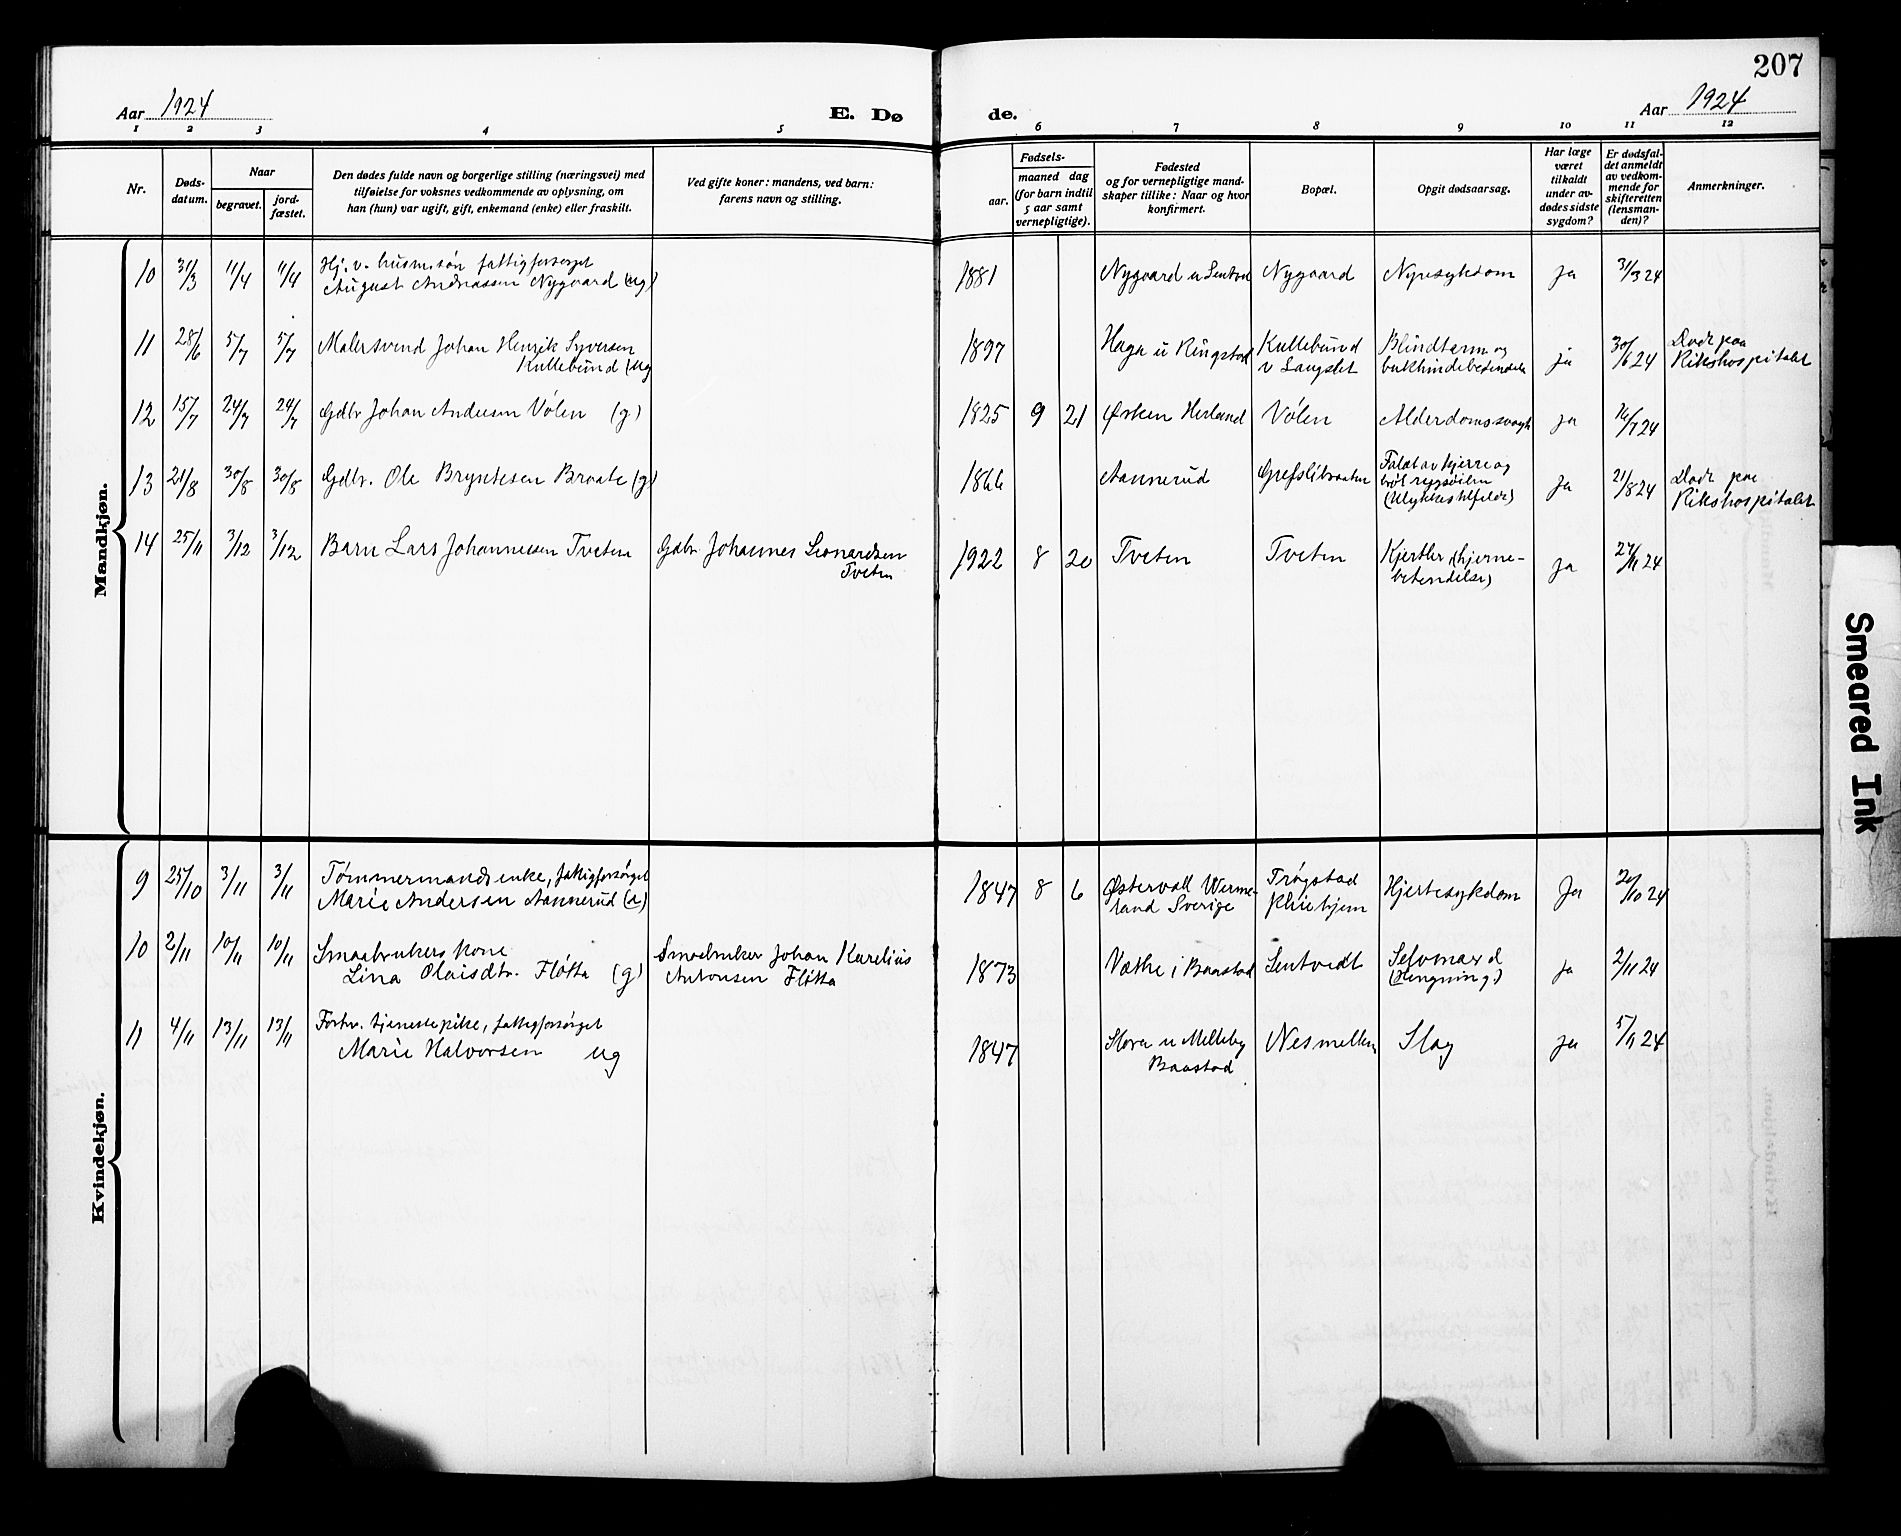 207
Aar 1924
E. Dø
de.
Aar 1924
1 2 3 4 5
6 7 8 9 10 11 12
Nr.
Døds-
datum.
Naar
begravet.
jord-
fæstet.
Den dødes fulde navn og borgerlige stilling (næringsvei) med
tilføielse for voksnes vedkommende av oplysning, om
han (hun) var ugift, gift, enkemand (enke) eller fraskilt.
Ved gifte koner: mandens, ved barn:
farens navn og stilling.
Fødsels-
aar.
maaned dag
(for barn indtil
5 aar samt
vernepligtige).
Fødested
og for vernepligtige mand-
skaper tillike: Naar og hvor
konfirmert.
Bopæl.
Opgit dødsaarsag.
Har læge
været
tilkaldt
under av-
dødes sidste
sygdom?
Er dødsfal-
det anmeldt
av vedkom-
mende for
skifteretten
(lensman-
den)?
Anmerkninger.
Mandkjøn.
10 31/3 11/4 11/4 Hj. v. husm.søn fattigforsørget
August Andreassen Nygaard (ug)
1881 Nygaard u Nygaard Nyresykdom ja 31/3 24
11 28/6 5/7 5/7 Malersvend Johan Henrik Syversen
Kullebund (ug
1897 Haga u Ringstad Kullebund
v Langslet
Blindtarm og
bukhindebetendelse
ja 30/6 24 Døde paa
Rikshospitalet
12 15/7 24/7 24/7 Gdbr Johan Andersen Vølen (g)
1825 9 21 Ørken Herland Vølen Alderdomssvagh ja 16/7 24
13 21/8 30/8 30/8 Gdbr. Ole Bryntesen Braate (g)
1866 Aannerud Grefslibraaten Faldt av kjerre og
brøt rygsøilen
(Ulykkestilfelde)
ja 21/8 24 Døde paa
Rikshospitalet
14 25/11 3/12 3/12 Barn Lars Johannessen Tveten Gdbr. Johannes Leonardsen
Tveten
1922 8 20 Tveten Tveten Kjertler (hjerne-
betendelse)
ja 27/11 24
Kvindekjøn.
9 25/10 3/11 3/11 Tømmermands enke, fattigforsørget
Marie Andersen Aannerud (e)
1847 8 6 Østervall Werme-
land Sverige
Trøgstad
pleiehjem
Hjertesykdom Ja /10 24
10 2/11 10/11 10/11 Smaabrukers kone
Lina Olaisdtr. Fløtta (g)
Smaabruker Johan Karelius
Antonsen Fløtta
1873 Væthe i Baastad Sentvedt Selvmord
(Hengning)
ja 2/11 24
11 4/11 13/11 13/11 Forhv. tjenestepike, fattigforsørget
Marie Halvorsen ug
1847 u Melleby
Baastad
Nesmellem Slag ja 5/11 24
Smeared Ink